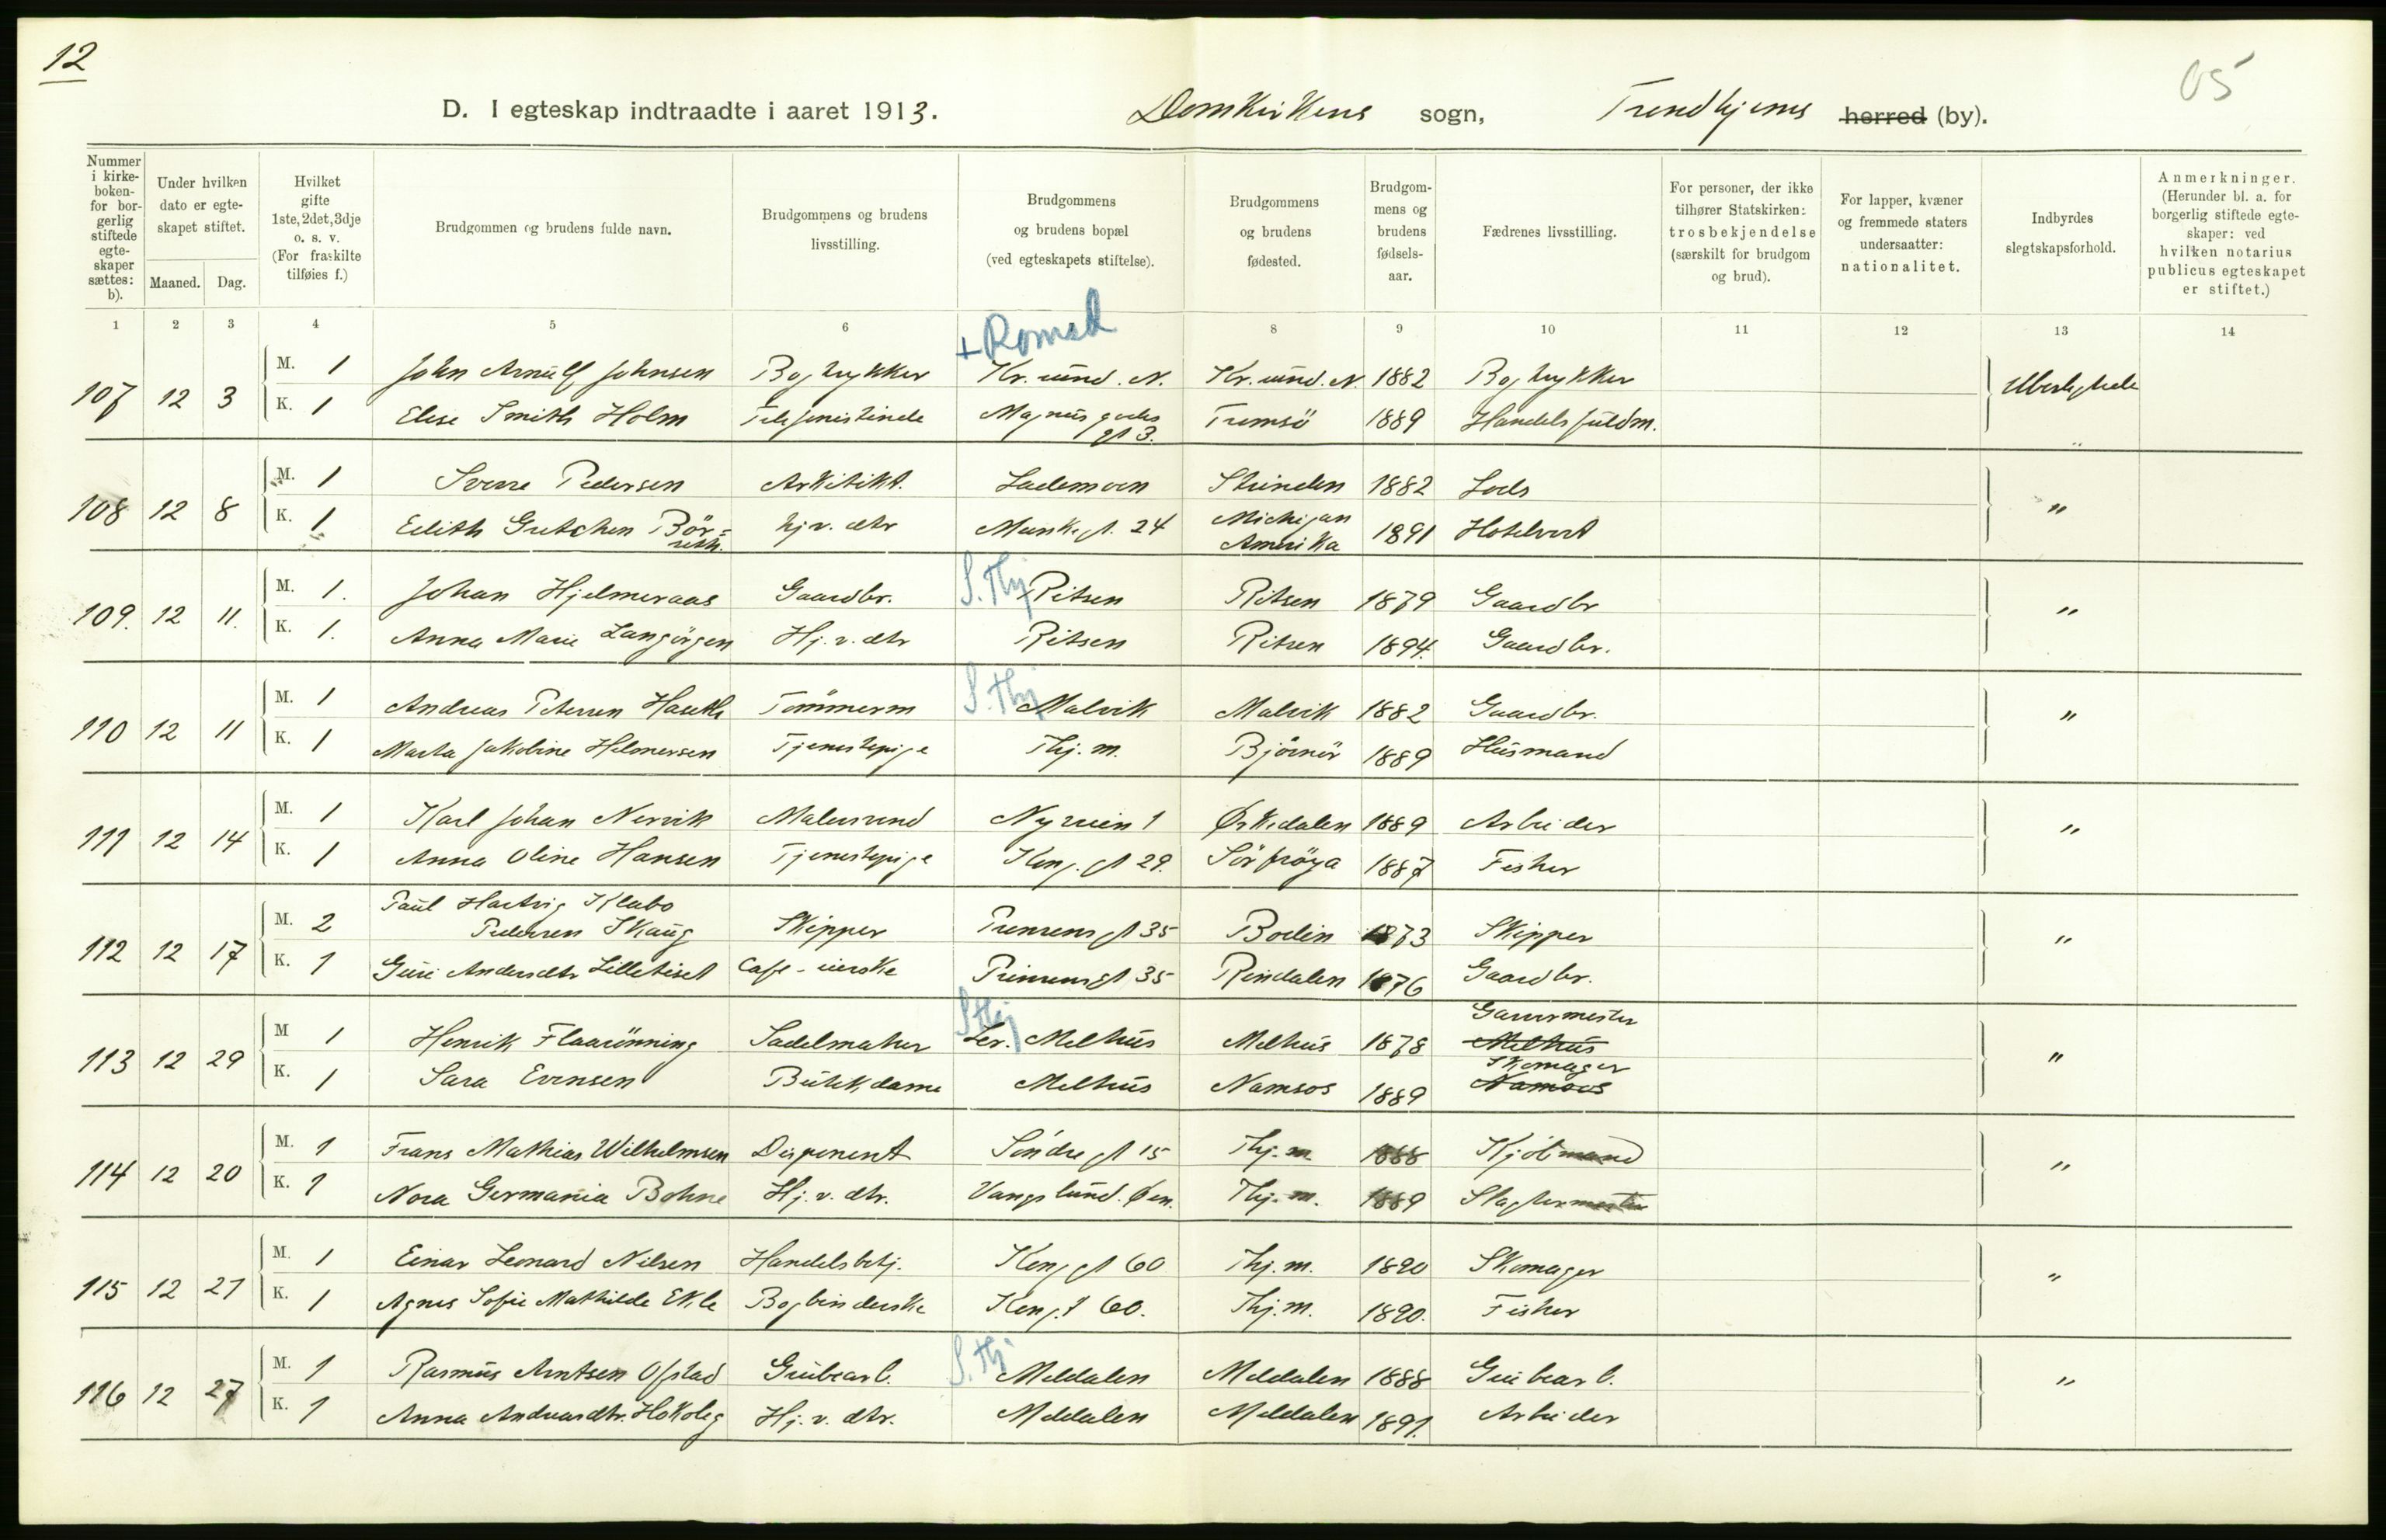 12
05
D. I egteskap indtraadte i aaret 1913. Domkirkens sogn, Trondhjems herred (by).
Nummer i kirkeboken- for borgerlig stiftede egteskaper sættes: b).
Under hvilken dato er egteskapet stiftet.
Maaned. Dag.
Hvilket gifte 1ste, 2det, 3dje o. s. v. (For fraskilte tilføies f.)
Brudgommen og brudens fulde navn.
Brudgommens og brudens livsstilling.
Brudgommens og brudens bopæl (ved egteskapets stiftelse).
Brudgommens og brudens fødested.
Brudgommens og brudens fødselsaar.
Fædrenes livsstilling.
For personer, der ikke tilhører Statskirken: trosbekjendelse (særskilt for brudgom og brud).
For lapper, kvæner og fremmede staters undersaatter: nationalitet.
Indbyrdes slegtskapsforhold.
Anmerkninger. (Herunder bl. a. for borgerlig stiftede egteskaper: ved hvilken notarius publicus egteskapet er stiftet.)
1 2 3 4 5 6 8 9 10 11 12 13 14
+ Romsd
107 12 3 M. 1 John Arnulf Johnsen Bogtrykker Kr.sund. N. Kr.sund. N. 1882 Bogtrykker Ubeslegtede
K. 1 Elise Smith Holm Telefonistinde Magnus godes gt 3. Tromsö 1889 Handelsfuldm.
108 12 8 M. 1 Sverre Pedersen Arkitekt. Lademoen Strinden 1882 Lods "
K. 1 Edith Gretchen Börseth. hj. v. dtr Munkegt. 24 Michigan Amerika 1891 Hotelvert
S. Thj
109. 12 11. M. 1. Johan Hjelmeraas Gaardbr. Ritsen Ritsen 1879 Gaardbr "
K. 1. Anna Marie Langörgen Hj. v. dtr Ritsen Ritsen 1894. Gaardbr.
S. Thj
110 12 11 M. 1 Andreas Petersen Haseth Tömmerm Malvik Malvik 1882 Gaardbr. "
K. 1 Marta Jakobine Helmersen Tjenestepige Thj. m. Björnör 1889 Husmand
111 12 14 M. 1 Karl Johan Nervik Malersvend Nyveien 1 Ørkedalen 1889 Arbeider "
K. 1 Anna Oline Hansen Tjenestepige Kong. gt 29. Sör fröya 1887 Fisker
112 12 17 M. 2 Paul Hartvig Klabo
Pedersen Skaug Skipper Prinsens gt 35 Bodin 1873 Skipper "
K. 1 Guri Andersdtr Lilletiset Cafe-eierske Prinsens gt 35 Rindalen 1876 Gaardbr.
S. Thj
Garvermester
113 12 29 M 1 Henrik Flaarönning Sadelmaker Ler. Melhus Melhus 1878 Melhus "
Skomager
K. 1 Sara Evensen Butikdame Melhus Namsos 1889 Namsos
114 12 20 M. 1 Frans Mathias Wilhelmsen Disponent Söndre gt 15 Thj. m. 1888 Kjöbmand "
K. 1 Nora Germania Bohne Hj. v. dtr. Vangslund. Øen. Thj. m. 1889 Slagtermester
115 12 27 M. 1 Einar Leonard Nilsen Handelsbetj. Kong. gt 60 Thj. m. 1890 Skomager "
K. 1 Agnes Sofie Mathilde Ekle Bogbinderske Kong. gt 60. Thj. m. 1890. Fisker
S. Thj
116 12 27 M. 1 Rasmus Arntsen Ofstad Grubearb. Meldalen Meldalen 1888 Grubearb. "
K. 1 Anna Andreasdtr. Hokoleg Hj. v. dtr. Meldalen Meldalen 1891. Arbeider